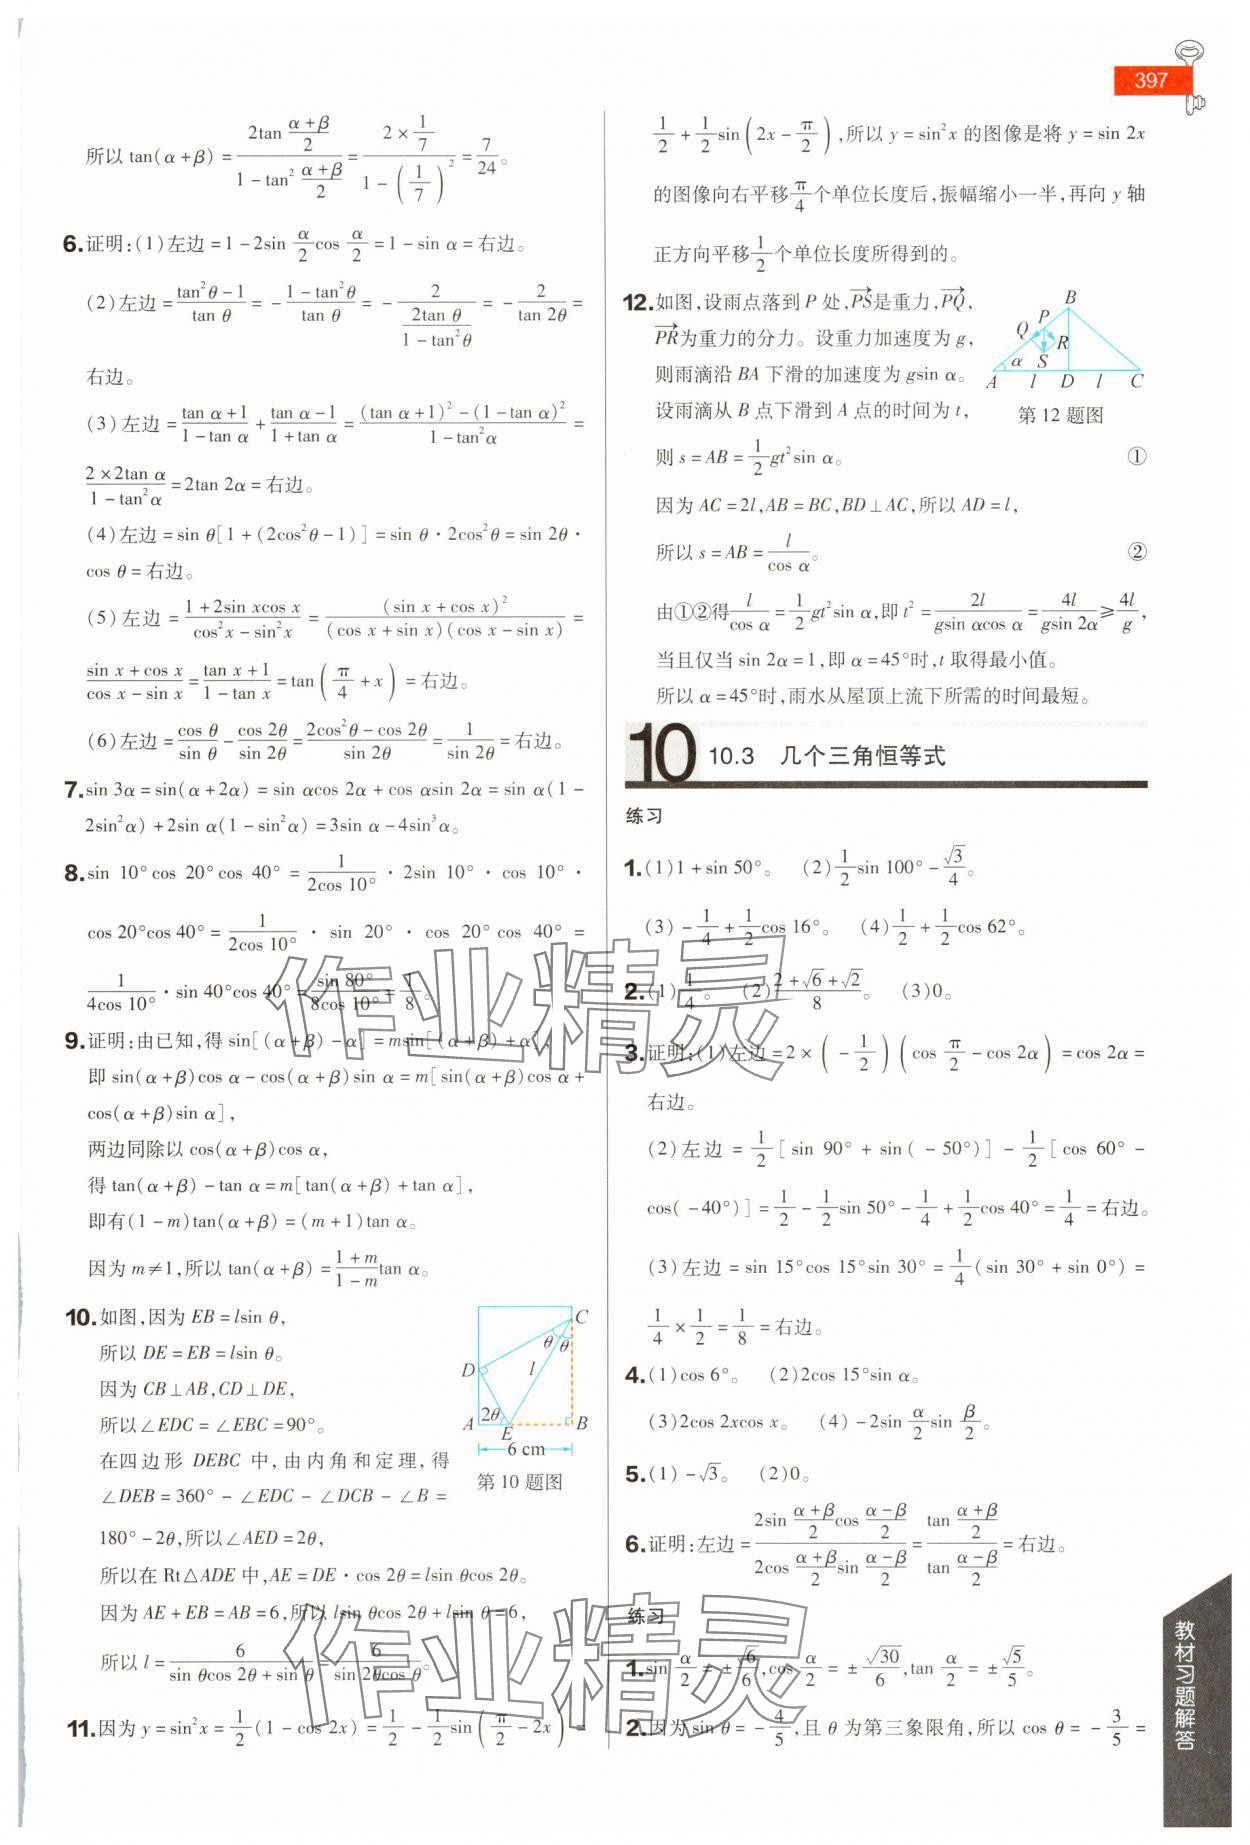 397
所以 tan(α+β) = (2tan (α+β)/2)/(1-tan² (α+β)/2) = (2×1/7)/(1-(1/7)²) = 7/24。
6.证明:(1)左边=1-2sin α/2 cos α/2=1-sin α=右边。
(2)左边=(tan²θ-1)/tan θ = -(1-tan²θ)/tan θ = -2/(2tan θ/(1-tan²θ)) = -2/tan 2θ=
右边。
(3)左边=(tan α+1)/(1-tan α)+(tan α-1)/(1+tan α)=((tan α+1)²-(1-tan α)²)/(1-tan²α)=
(2×2tan α)/(1-tan²α)=2tan 2α=右边。
(4)左边=sin θ[1+(2cos²θ-1)]=sin θ·2cos²θ=sin 2θ·
cos θ=右边。
(5)左边=(1+2sin xcos x)/(cos²x-sin²x)=(sin x+cos x)²/((cos x+sin x)(cos x-sin x))=
(sin x+cos x)/(cos x-sin x)=(tan x+1)/(1-tan x)=tan(π/4+x)=右边。
(6)左边=cos θ/sin θ-cos 2θ/sin 2θ=(2cos²θ-cos 2θ)/sin 2θ=1/sin 2θ=右边。
7.sin 3α=sin(α+2α)=sin αcos 2α+cos αsin 2α=sin α(1-
2sin²α)+2sin α(1-sin²α)=3sin α-4sin³α。
8.sin 10°cos 20°cos 40°=1/(2cos 10°)·2sin 10°·cos 10°·
cos 20°cos 40°=1/(2cos 10°)·sin 20°·cos 20°cos 40°=
1/(4cos 10°)·sin 40°cos 40°=sin 80°/(8cos 10°)=1/8。
9.证明:由已知,得 sin[(α+β)-α]=msin[(α+β)+α],
即 sin(α+β)cos α-cos(α+β)sin α=m[sin(α+β)cos α+
cos(α+β)sin α],
两边同除以 cos(α+β)cos α,
得 tan(α+β)-tan α=m[tan(α+β)+tan α],
即有(1-m)tan(α+β)=(m+1)tan α。
因为 m≠1,所以 tan(α+β)=(1+m)/(1-m)tan α。
10.如图,因为 EB=lsin θ,
所以 DE=EB=lsin θ。
因为 CB⊥AB,CD⊥DE,
所以∠EDC=∠EBC=90°。
在四边形 DEBC 中,由内角和定理,得
∠DEB=360°-∠EDC-∠DCB-∠B=
180°-2θ,所以∠AED=2θ,
C
θ θ
D l
A 2θ E B
6 cm
第 10 题图
所以在 Rt△ADE 中,AE=DE·cos 2θ=lsin θcos 2θ。
因为 AE+EB=AB=6,所以 lsin θcos 2θ+lsin θ=6,
所以 l=6/(sin θcos 2θ+sin θ)=6/(sin 2θcos θ)。
11.因为 y=sin²x=1/2(1-cos 2x)=1/2-1/2sin(π/2-2x)=
1/2+1/2sin(2x-π/2),所以 y=sin²x 的图像是将 y=sin 2x
的图像向右平移π/4个单位长度后,振幅缩小一半,再向 y 轴
正方向平移1/2个单位长度所得到的。
12.如图,设雨点落到 P 处,PS→是重力,PQ→,
PR→为重力的分力。设重力加速度为 g,
则雨滴沿 BA 下滑的加速度为 gsin α。
设雨滴从 B 点下滑到 A 点的时间为 t,
B
P
Q
R
α S
A l D l C
第 12 题图
则 s=AB=1/2gt²sin α。 ①
因为 AC=2l,AB=BC,BD⊥AC,所以 AD=l,
所以 s=AB=l/cos α。 ②
由①②得l/cos α=1/2gt²sin α,即 t²=2l/(gsin αcos α)=4l/(gsin 2α)≥4l/g,
当且仅当 sin 2α=1,即 α=45°时,t 取得最小值。
所以 α=45°时,雨水从屋顶上流下所需的时间最短。
10 10.3 几个三角恒等式
练习
1.(1)1+sin 50°。 (2)1/2sin 100°-√3/4。
(3)-1/4+1/2cos 16°。 (4)1/2+1/2cos 62°。
2.(1)1/4。 (2)(2+√6+√2)/8。 (3)0。
3.证明:(1)左边=2×(-1/2)(cos π/2-cos 2α)=cos 2α=
右边。
(2)左边=1/2[sin 90°+sin(-50°)]-1/2[cos 60°-
cos(-40°)]=1/2-1/2sin 50°-1/4+1/2cos 40°=1/4=右边。
(3)左边=sin 15°cos 15°sin 30°=1/4(sin 30°+sin 0°)=
1/4×1/2=1/8=右边。
4.(1)cos 6°。 (2)2cos 15°sin α。
(3)2cos 2xcos x。 (4)-2sin α/2 sin β/2。
5.(1)-√3。 (2)0。
6.证明:左边=(2sin (α+β)/2 cos (α-β)/2)/(2cos (α+β)/2 sin (α-β)/2)=(tan (α+β)/2)/(tan (α-β)/2)=右边。
练习
1.sin α/2=±√6/6,cos α/2=±√30/6,tan α/2=±√5/5。
2.因为 sin θ=-4/5,且 θ 为第三象限角,所以 cos θ=-3/5=
教材习题解答
作业精灵
作业精灵